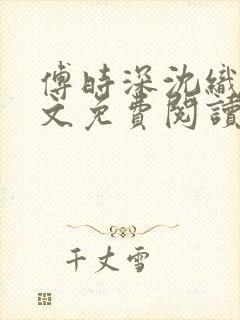 傅時深沈織
文免費閱讀
千丈雪